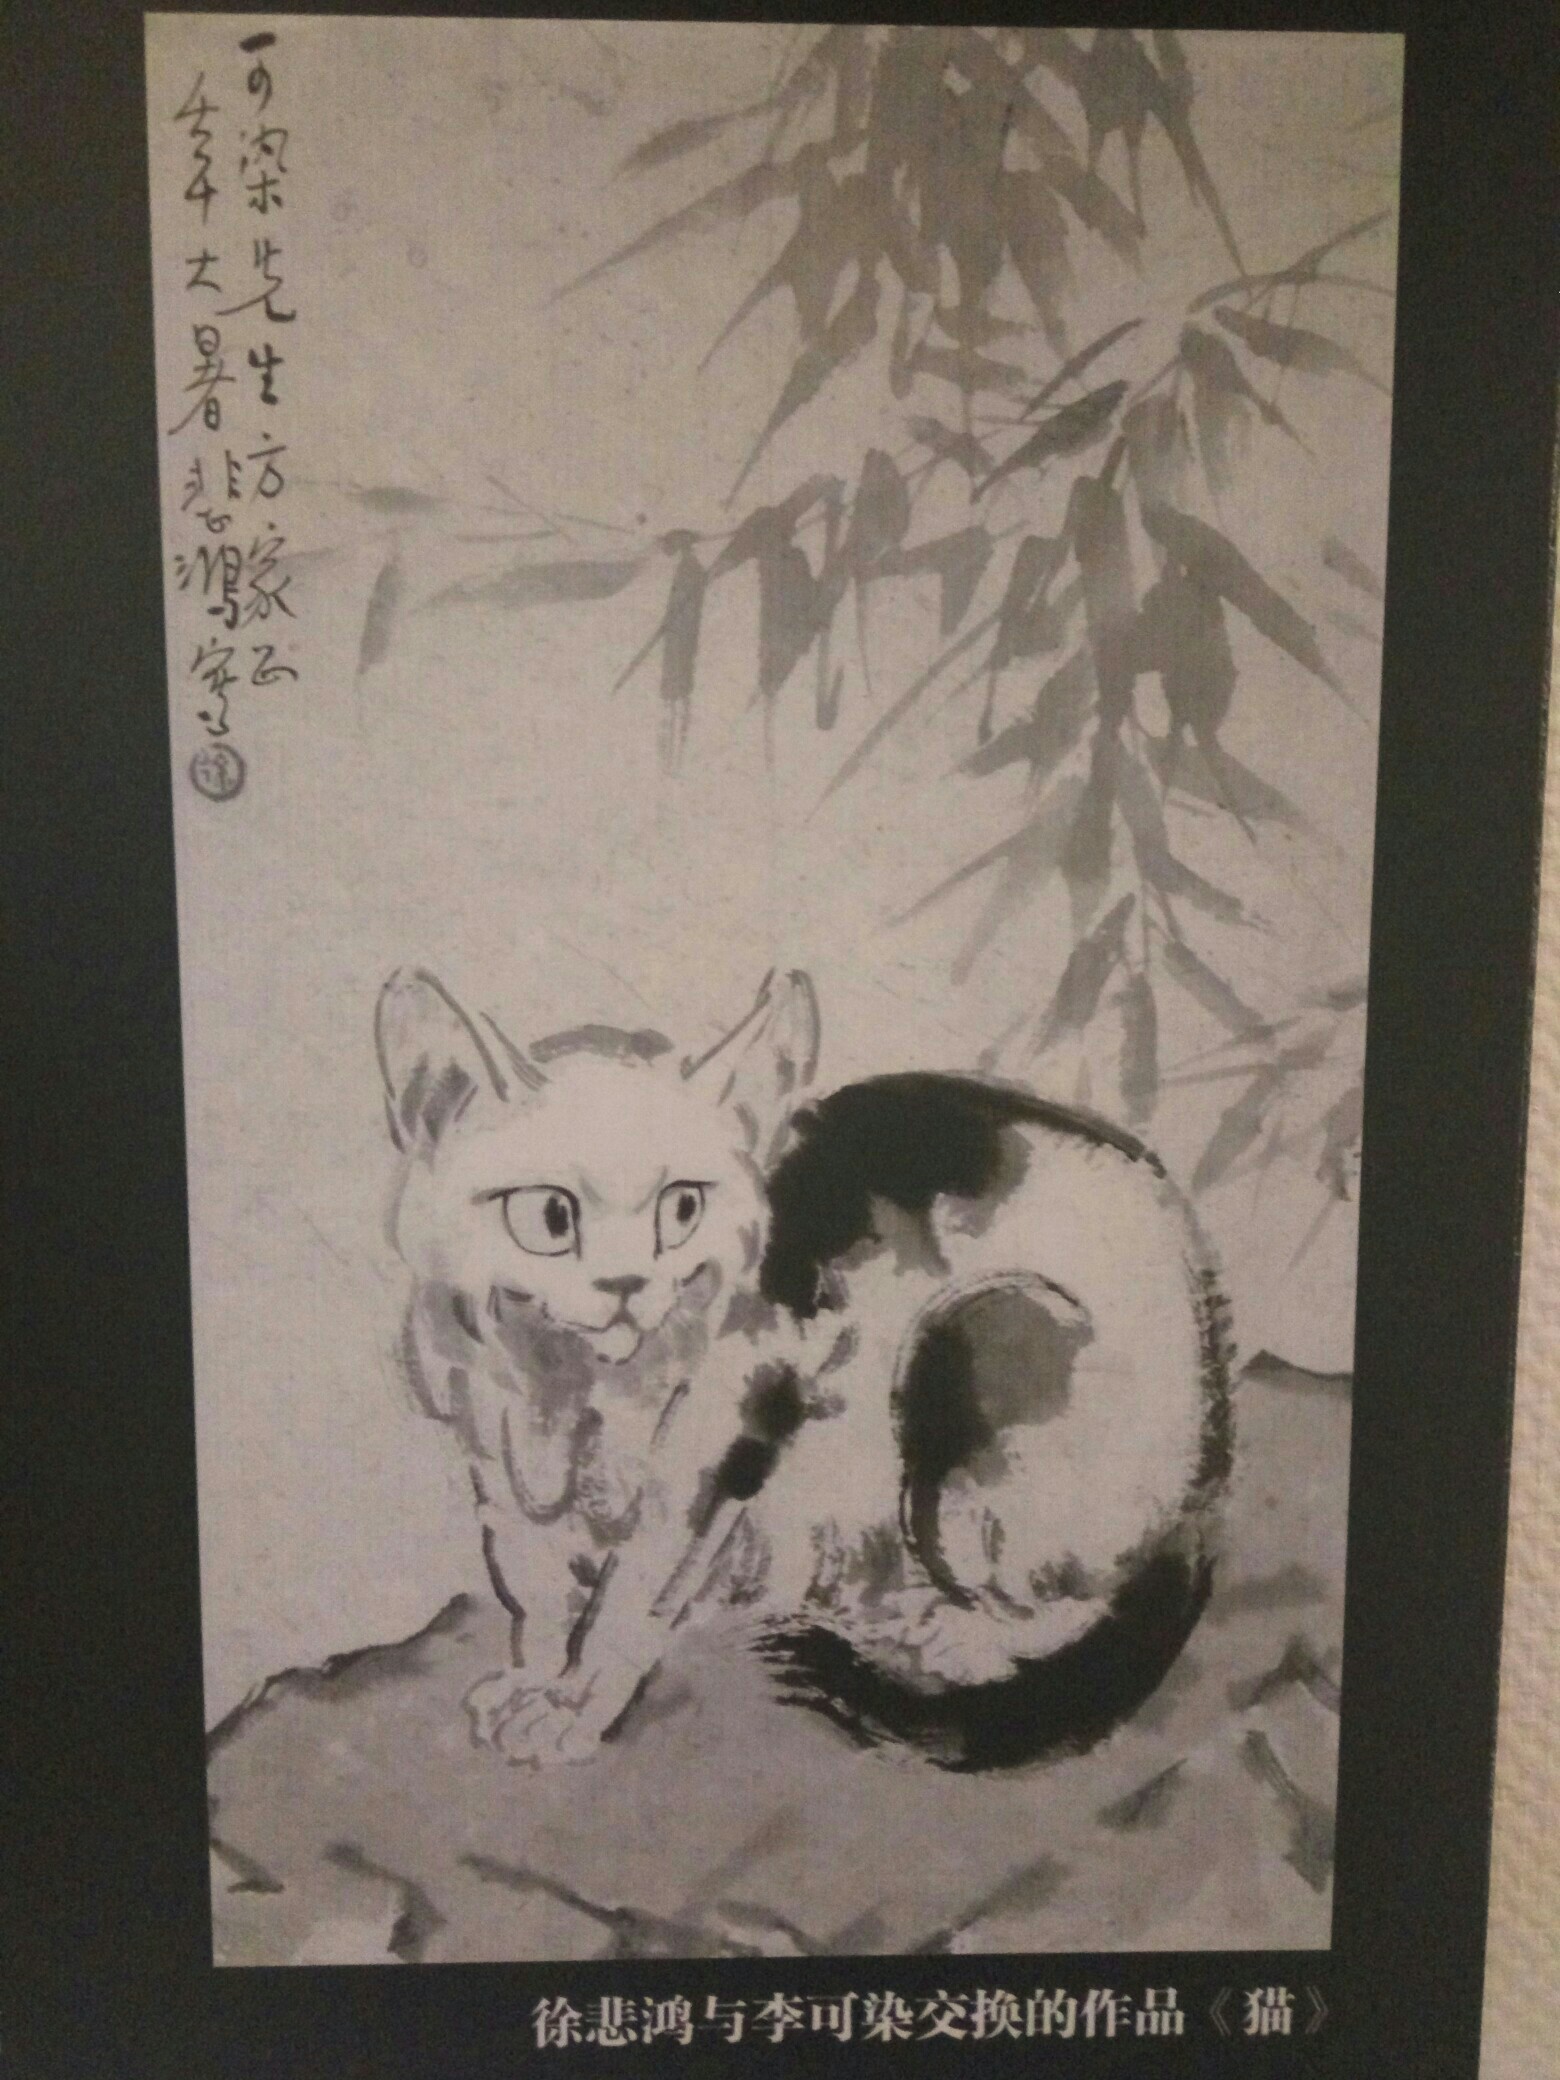 可染先生方家正
壬午大暑悲鴻寫
徐
徐悲鸿与李可染交换的作品《猫》